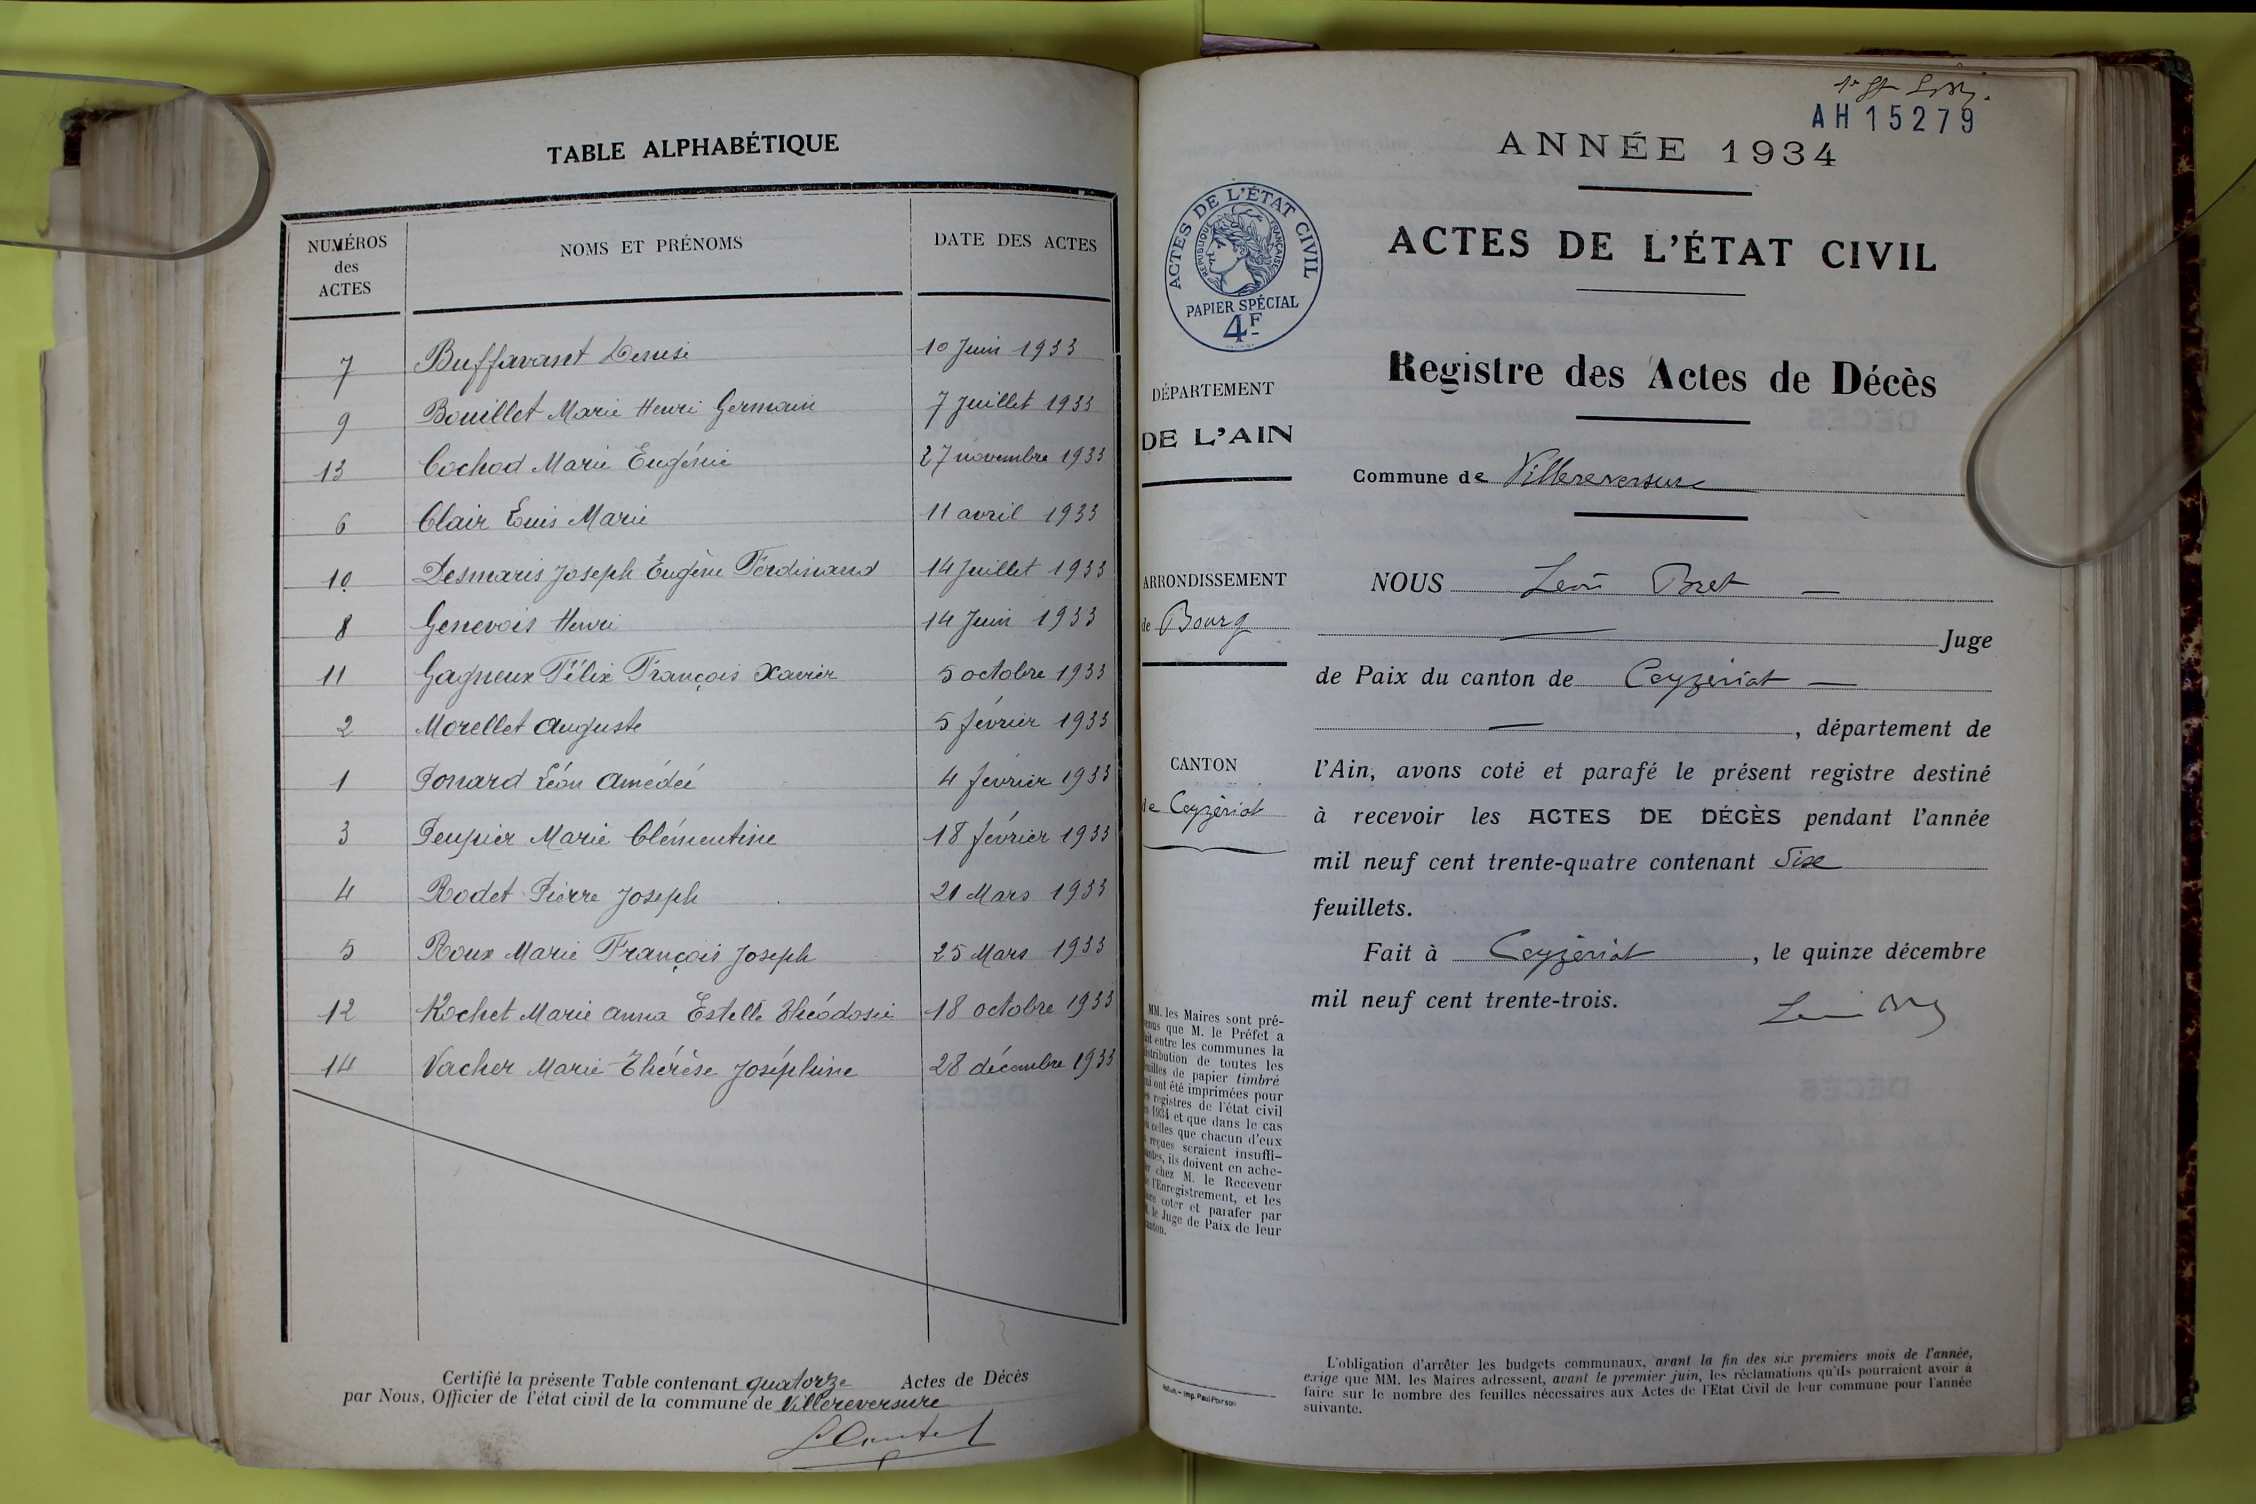 TABLE ALPHABÉTIQUE
NUMÉROS des ACTES NOMS ET PRÉNOMS DATE DES ACTES
7 Buffavant Denise 10 Juin 1933
9 Bouillet Marie Henri Germain 7 Juillet 1933
13 Cochod Marie Eugénie 27 novembre 1933
6 Clair Louis Marie 11 avril 1933
10 Desmaris Joseph Eugène Ferdinand 14 Juillet 1933
8 Genevois Henri 14 Juin 1933
11 Gagneux Félix François Xavier 5 octobre 1933
2 Morellet Auguste 5 février 1933
1 Ponard Léon Amédée 4 février 1933
3 Peupier Marie Clémentine 18 février 1933
4 Rodet Pierre Joseph 21 Mars 1933
5 Roux Marie François Joseph 25 Mars 1933
12 Rochet Marie Anna Estelle Théodosie 18 octobre 1933
14 Vacher Marie Thérèse Joséphine 28 décembre 1933
Certifié la présente Table contenant quatorze Actes de Décès
par Nous, Officier de l'état civil de la commune de Villereversure
AH 15279
ANNÉE 1934
ACTES DE L'ÉTAT CIVIL
RÉPUBLIQUE FRANÇAISE
PAPIER SPÉCIAL
4F
ACTES DE L'ÉTAT CIVIL
Registre des Actes de Décès
DÉPARTEMENT
DE L'AIN
Commune de Villereversure
ARRONDISSEMENT
de Bourg
CANTON
de Ceyzériat
NOUS Léon Bret
Juge
de Paix du canton de Ceyzériat
, département de
l'Ain, avons coté et parafé le présent registre destiné
à recevoir les ACTES DE DÉCÈS pendant l'année
mil neuf cent trente-quatre contenant Six
feuillets.
Fait à Ceyzériat, le quinze décembre
mil neuf cent trente-trois.
MM. les Maires sont pré-
venus que M. le Préfet a
fait entre les communes la
distribution de toutes les
feuilles de papier timbré
qui ont été imprimées pour
les registres de l'état civil
en 1934 et que dans le cas
où celles que chacun d'eux
a reçues seraient insuffi-
santes, ils doivent en ache-
ter chez M. le Receveur
de l'Enregistrement, et les
faire coter et parafer par
M. le Juge de Paix de leur
canton.
Imp. Paul Poirson
L'obligation d'arrêter les budgets communaux, avant la fin des six premiers mois de l'année,
exige que MM. les Maires adressent, avant le premier juin, les réclamations qu'ils pourraient avoir à
faire sur le nombre des feuilles nécessaires aux Actes de l'Etat Civil de leur commune pour l'année
suivante.